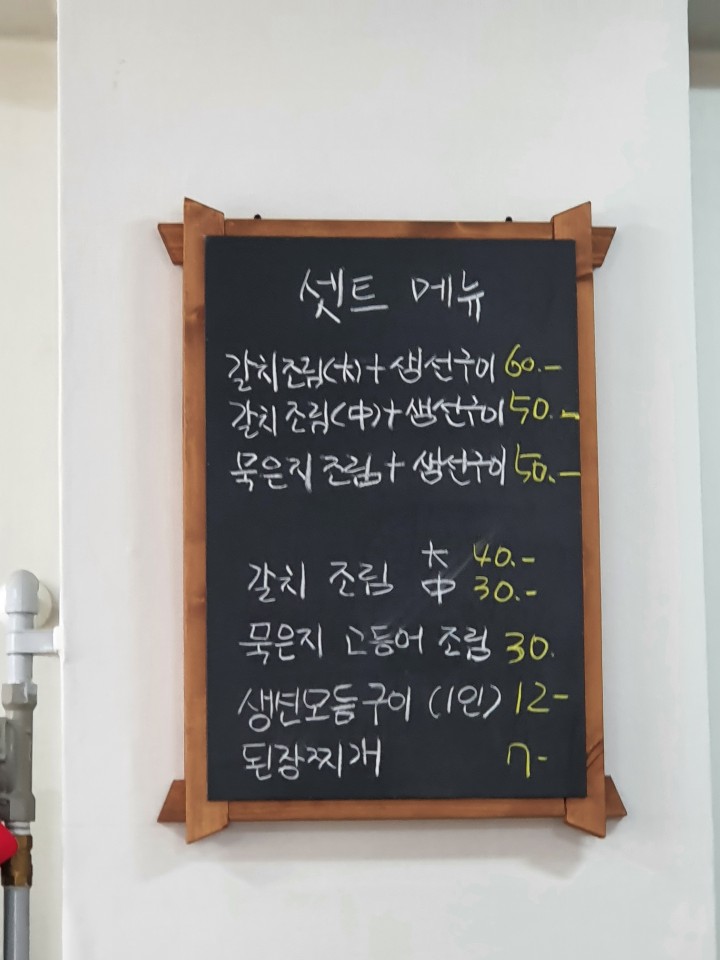 셋트 메뉴
갈치조림(大)+생선구이 60.-
갈치조림(中)+생선구이 50.-
묵은지조림+생선구이 50.-
갈치 조림 大 40.-
中 30.-
묵은지 고등어 조림 30.
생선모듬구이 (1인) 12-
된장찌개 7-